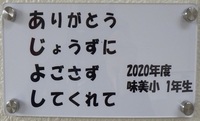 ありがとう
じょうずに
よごさず
してくれて
2020年度
味美小 1年生